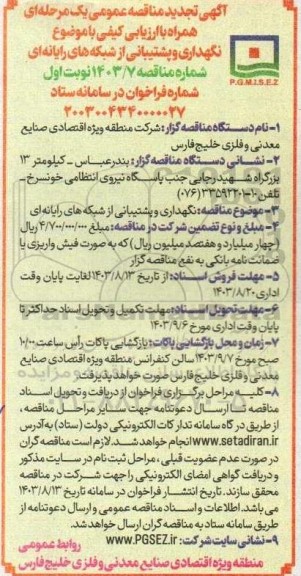 آگهی تجدید مناقصه عمومی یک مرحله ای
همراه با ارزیابی کیفی با موضوع
نگهداری و پشتیبانی از شبکه های رایانه ای
شماره مناقصه ۱۴۰۳/۷ نوبت اول
شماره فراخوان در سامانه ستاد
۲۰۰۳۰۰۴۳۴۰۰۰۰۰۲۷
P.G.M.I.S.E.Z
۱- نام دستگاه مناقصه گزار: شرکت منطقه ویژه اقتصادی صنایع
معدنی و فلزی خلیج فارس
۲- نشانی دستگاه مناقصه گزار: بندرعباس - کیلومتر ۱۳
بزرگراه شهید رجایی جنب پاسگاه نیروی انتظامی خونسرخ -
تلفن: ۱۰-۳۳۵۹۳۲۰۱ (۰۷۶)
۳- موضوع مناقصه: نگهداری و پشتیبانی از شبکه های رایانه ای
۴- مبلغ و نوع تضمین شرکت در مناقصه: مبلغ ۴/۷۰۰/۰۰۰/۰۰۰ ریال
(چهار میلیارد و هفتصد میلیون ریال) که به صورت فیش واریزی یا
ضمانت نامه بانکی به نفع مناقصه گزار
۵- مهلت فروش اسناد: از تاریخ ۱۴۰۳/۸/۱۳ لغایت پایان وقت
اداری ۱۴۰۳/۸/۲۰
۶- مهلت تحویل اسناد: مهلت تکمیل و تحویل اسناد حداکثر تا
پایان وقت اداری مورخ ۱۴۰۳/۹/۶
۷- زمان و محل بازگشایی پاکات: بازگشایی پاکات رأس ساعت ۱۰/۰۰
صبح مورخ ۱۴۰۳/۹/۷ سالن کنفرانس منطقه ویژه اقتصادی صنایع
معدنی و فلزی خلیج فارس صورت خواهد پذیرفت.
۸- کلیه مراحل برگزاری فراخوان از دریافت و تحویل اسناد
مناقصه تا ارسال دعوتنامه جهت سایر مراحل مناقصه،
از طریق درگاه سامانه تدارکات الکترونیکی دولت (ستاد) به آدرس
www.setadiran.ir انجام خواهد شد. لازم است مناقصه گران
در صورت عدم عضویت قبلی، مراحل ثبت نام در سایت مذکور
و دریافت گواهی امضای الکترونیکی را جهت شرکت در مناقصه
محقق سازند. تاریخ انتشار فراخوان در سامانه تاریخ ۱۴۰۳/۸/۱۳
می باشد. اطلاعات و اسناد مناقصه عمومی و ارسال دعوتنامه از
طریق سامانه ستاد به مناقصه گران ارسال خواهد شد.
۹- نشانی سایت شرکت: www.PGSEZ.ir
روابط عمومی
منطقه ویژه اقتصادی صنایع معدنی و فلزی خلیج فارس